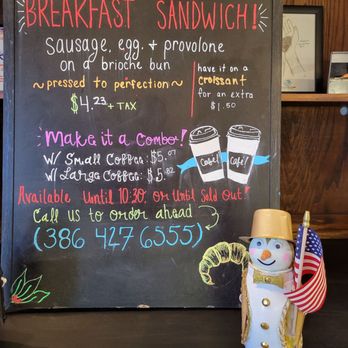 BREAKFAST SANDWICH!
Sausage, egg, + provolone
on a brioche bun
~ pressed to perfection ~
$4.23 + TAX
have it on a
croissant
for an extra
$1.50
Make it a Combo!
W/ Small Coffee: $5.07
W/ Large Coffee: $5.82
Café! Café!
Available Until 10:30, or Until Sold Out!
Call us to order ahead
(386 427 6555)